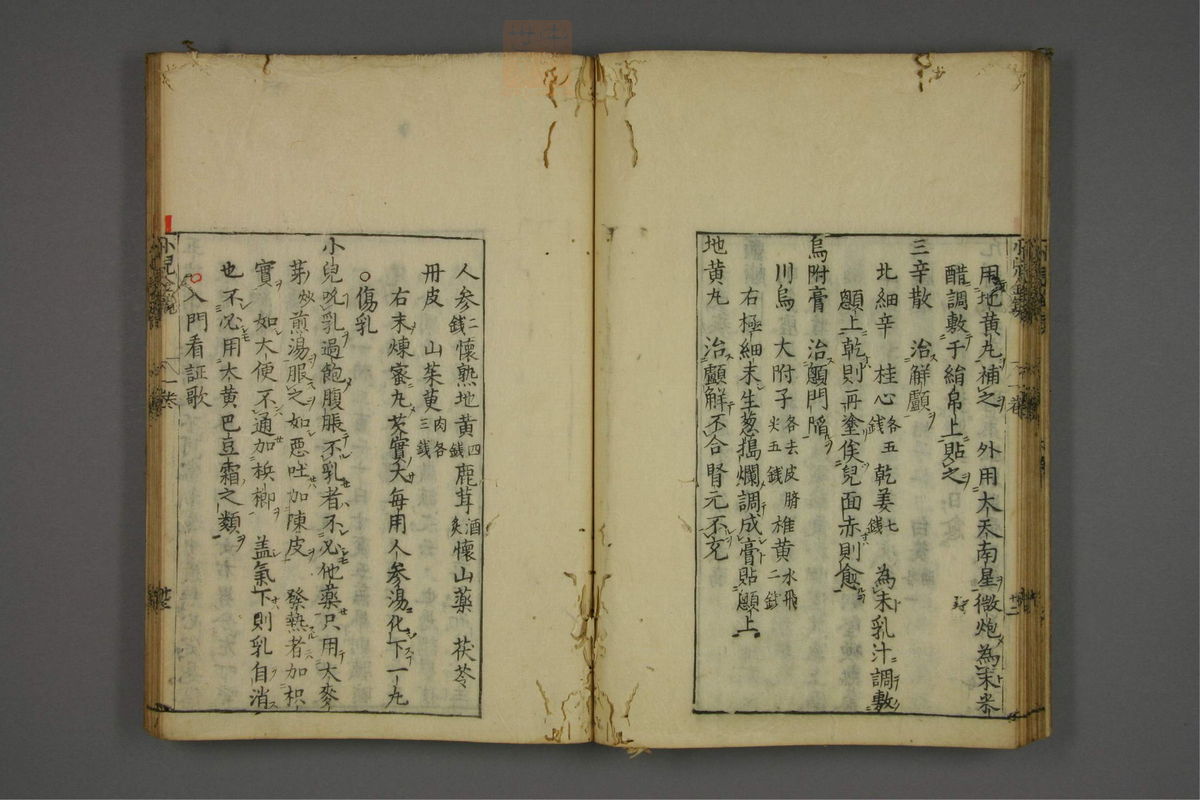 用地黄丸補之 外用大天南星微炮為末米
醋調敷于絹帛上貼之
三辛散 治解顱
北細辛 桂心各五錢 乾姜七錢 為末乳汁調敷
顖上乾則再塗俟兒面赤則愈
烏附膏 治顖門陷
川烏 大附子各去皮臍火五錢 雄黄水飛二錢
右極細末生葱搗爛調成膏貼顖上
地黄丸 治顱解不合腎元不充
人参二錢 懐熟地黄四錢 鹿茸酒炙 懐山薬 茯苓
册皮 山茱萸肉各三錢
右末煉蜜丸芡實大每用人参湯化下一丸
○傷乳
小兒吮乳過飽腹脹不乳者不必他薬只用大麥
芽炒煎湯服之如惡吐加陳皮 發熱者加枳
實 如大便不通加梹榔 盖氣下則乳自消
也不必用大黄巴豆霜之類
○入門看証歌